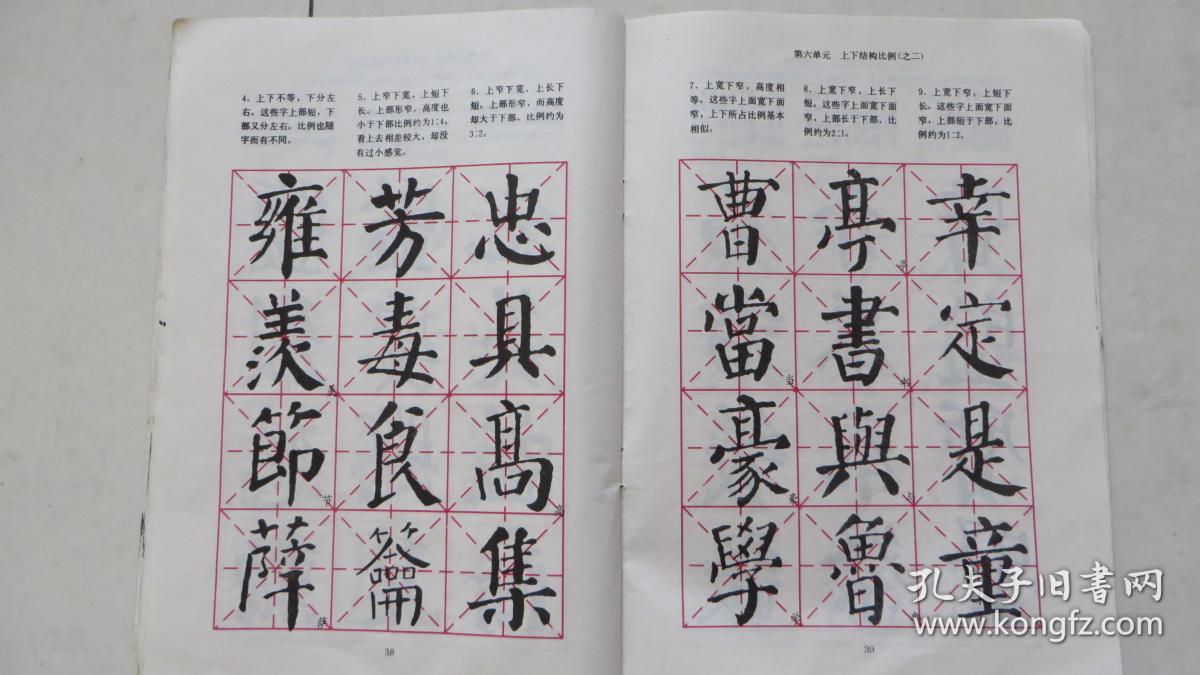 4、上下不等，下分左
右。这些字上部短，下
部又分左右。比例也随
字而有不同。
5、上窄下宽，上短下
长。上部形窄，高度也
小于下部比例约为1∶4，
看上去相差较大，却没
有过小感觉。
6、上窄下宽、上长下
短。上部形窄，而高度
却大于下部，比例约为
3∶2。
雍 芳 忠
羡 毒 具
美
節 食 高
节 高
薛 籥 集
萨
38
第六单元 上下结构比例(之二)
7、上宽下窄，高度相
等。这些字上面宽下面
窄，上下所占比例基本
相似。
8、上宽下窄，上长下
短。这些字上面宽下面
窄，上部长于下部，比
例约为2∶1。
9、上宽下窄，上短下
长。这些字上面宽下面
窄，上部短于下部，比
例约为1∶2。
曹 亭 幸
亭
當 書 定
当 书
豪 與 是
豪 与
學 魯 童
学
39
孔夫子旧书网
www.kongfz.com